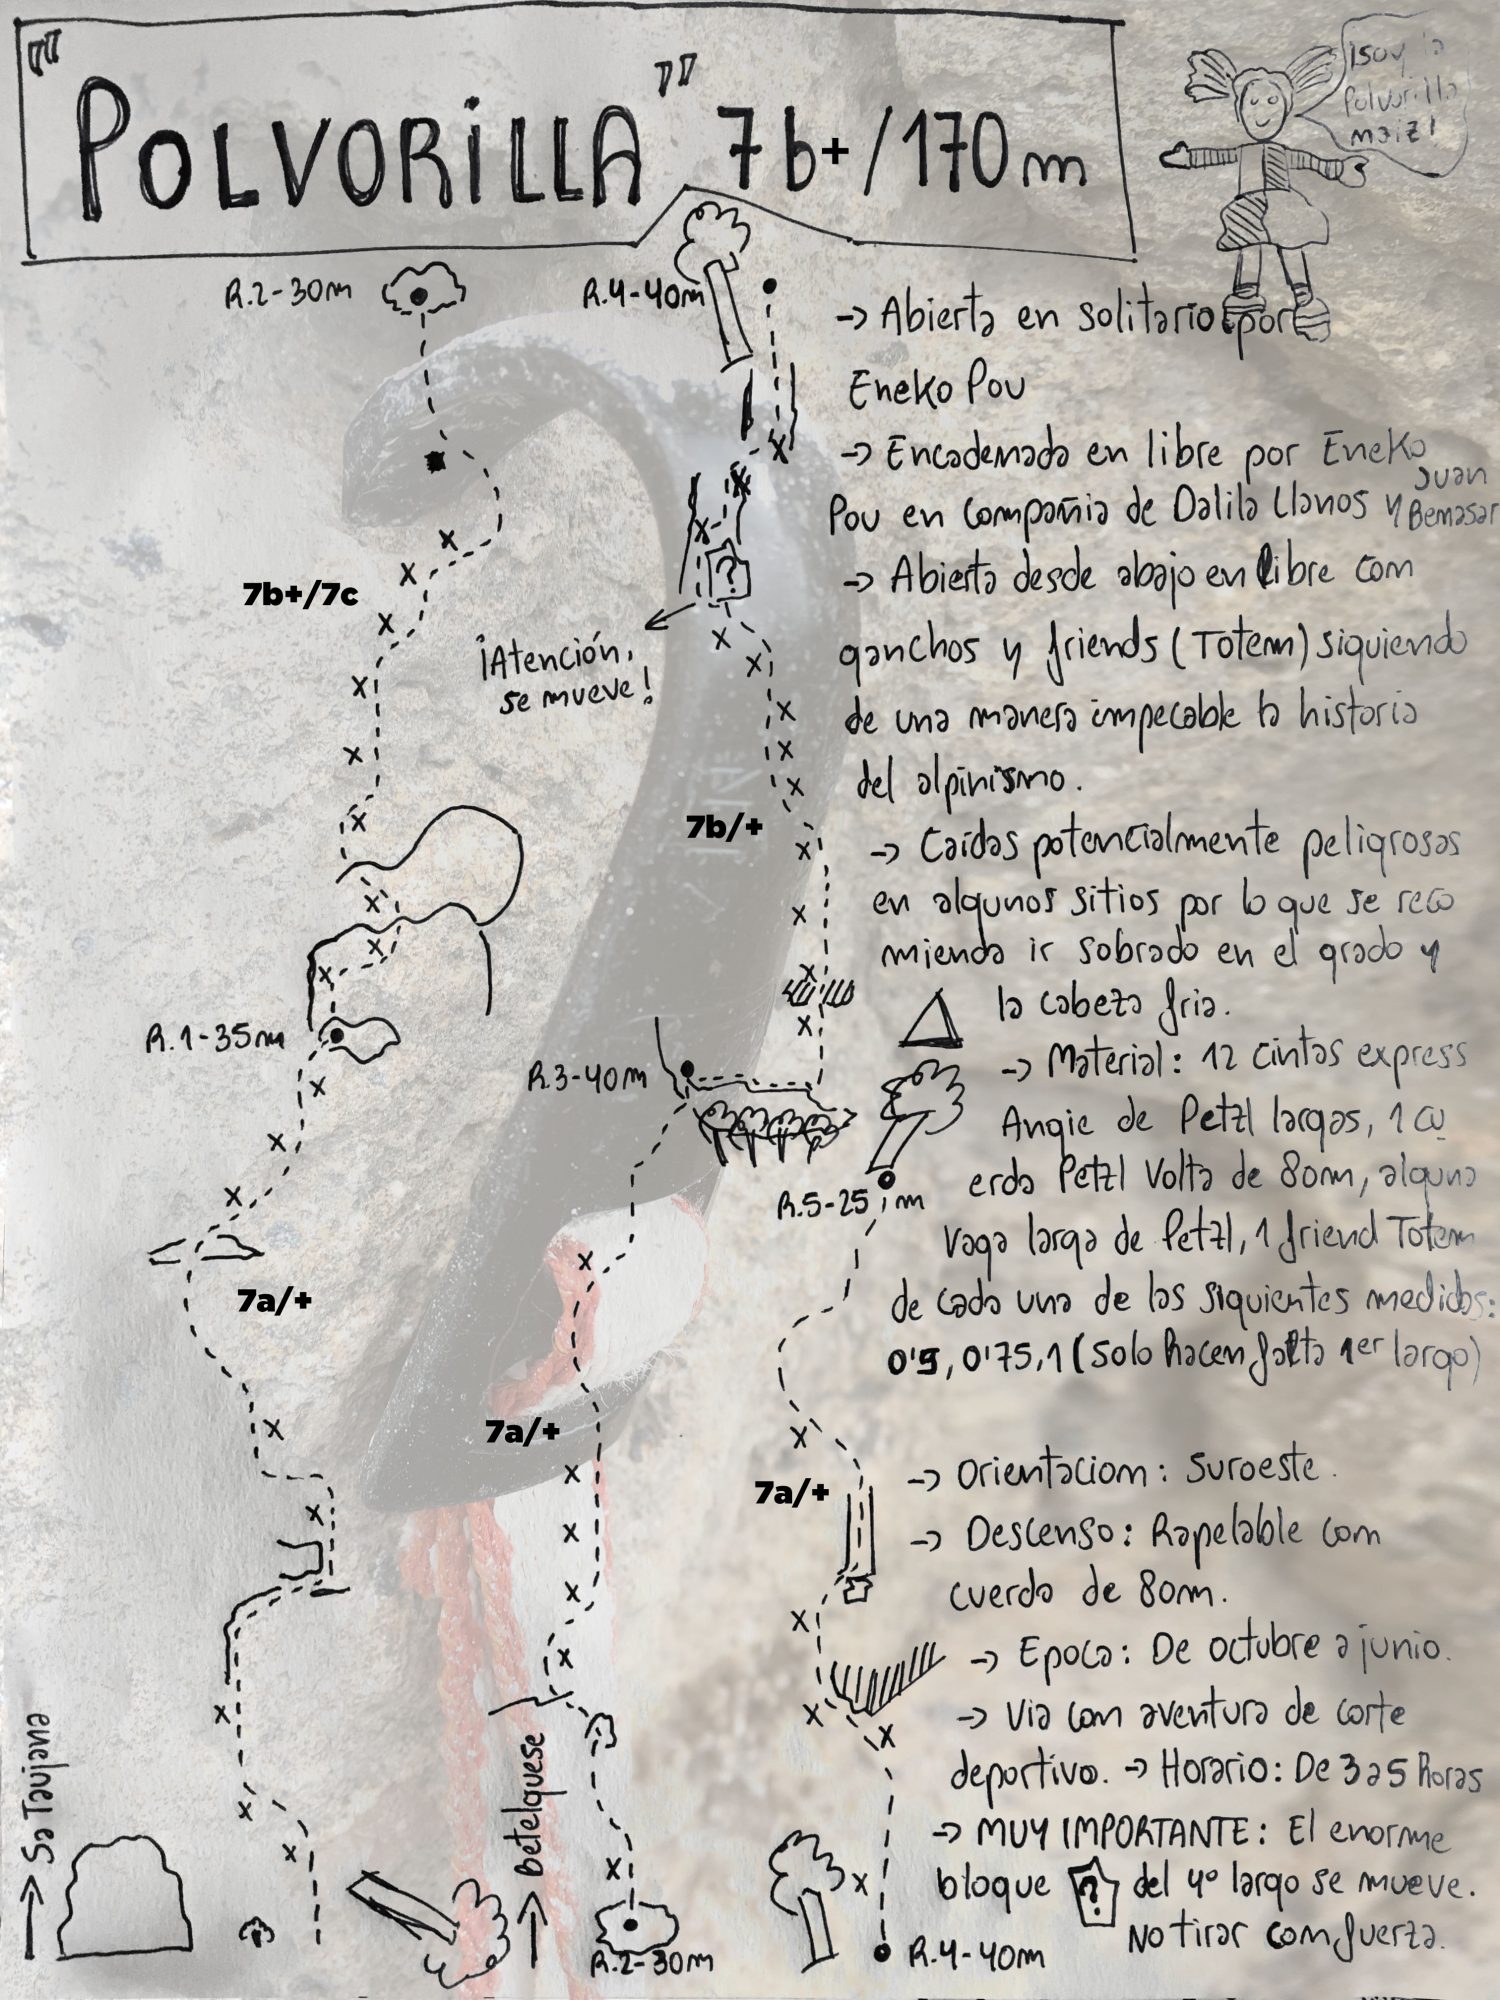 "POLVORILLA" 7b+/170m
¡SOY la
Polvorilla
maiz!
R.2-30m
R.4-40m
7b+/7c
¡Atención,
se mueve!
7b/+
R.1-35m
R.3-40m
R.5-25m
7a/+
7a/+
7a/+
→ Sa Taujana
→ betelguese
R.2-30m
R.4-40m
→ Abierta en solitario por
Eneko Pou
→ Encadenada en libre por Eneko
Pou en compañia de Dalila Llanos y Juan
Bemasar
→ Abierta desde abajo en libre con
ganchos y friends (Totem) siguiendo
de una manera impecable la historia
del alpinismo.
→ Caídas potencialmente peligrosas
en algunos sitios por lo que se reco
mienda ir sobrado en el grado y
la cabeza fria.
→ Material: 12 cintas express
Angie de Petzl largas, 1 cu
erda Petzl Volta de 80m, alguna
vaga larga de Petzl, 1 friend Totem
de cada una de las siguientes medidas:
0'5, 0'75, 1 (solo hacen falta 1er largo)
→ Orientacion: Suroeste.
→ Descenso: Rapelable con
cuerda de 80m.
→ Epoca: De octubre a junio.
→ Via con aventura de corte
deportivo. → Horario: De 3 a 5 horas
→ MUY IMPORTANTE: El enorme
bloque ? del 4º largo se mueve.
No tirar con fuerza.